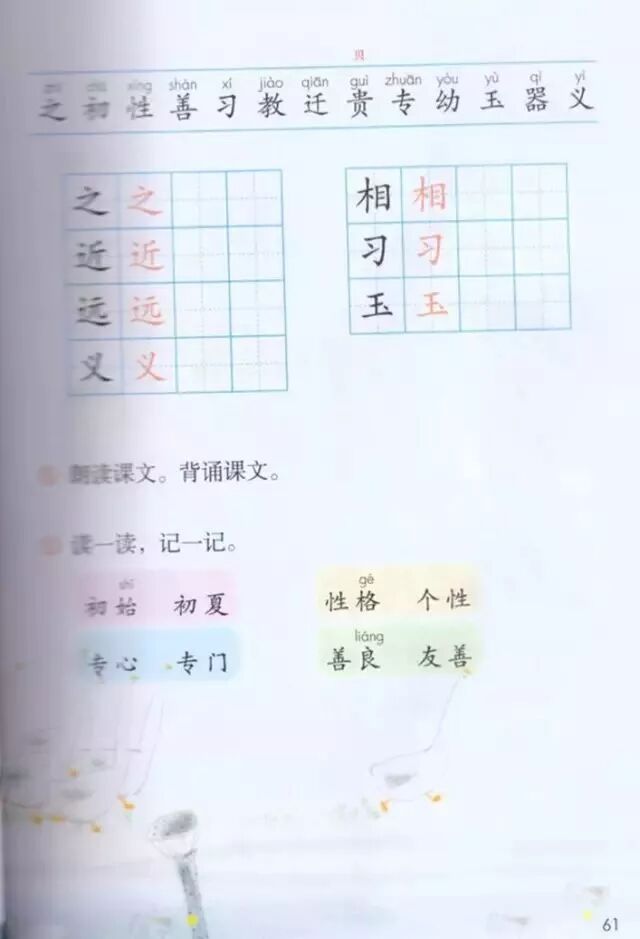 贝
zhī chū xìng shàn xí jiào qiān guì zhuān yòu yù qì yì
之 初 性 善 习 教 迁 贵 专 幼 玉 器 义
之 之 相 相
近 近 习 习
远 远 玉 玉
义 义
朗读课文。背诵课文。
读一读，记一记。
shǐ gé
初始 初夏 性格 个性
liáng
专心 专门 善良 友善
61